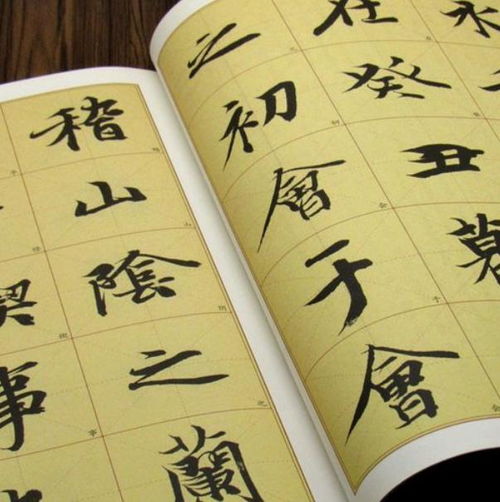 永
在癸丑暮
之初會于會
稽山陰之蘭
禊事